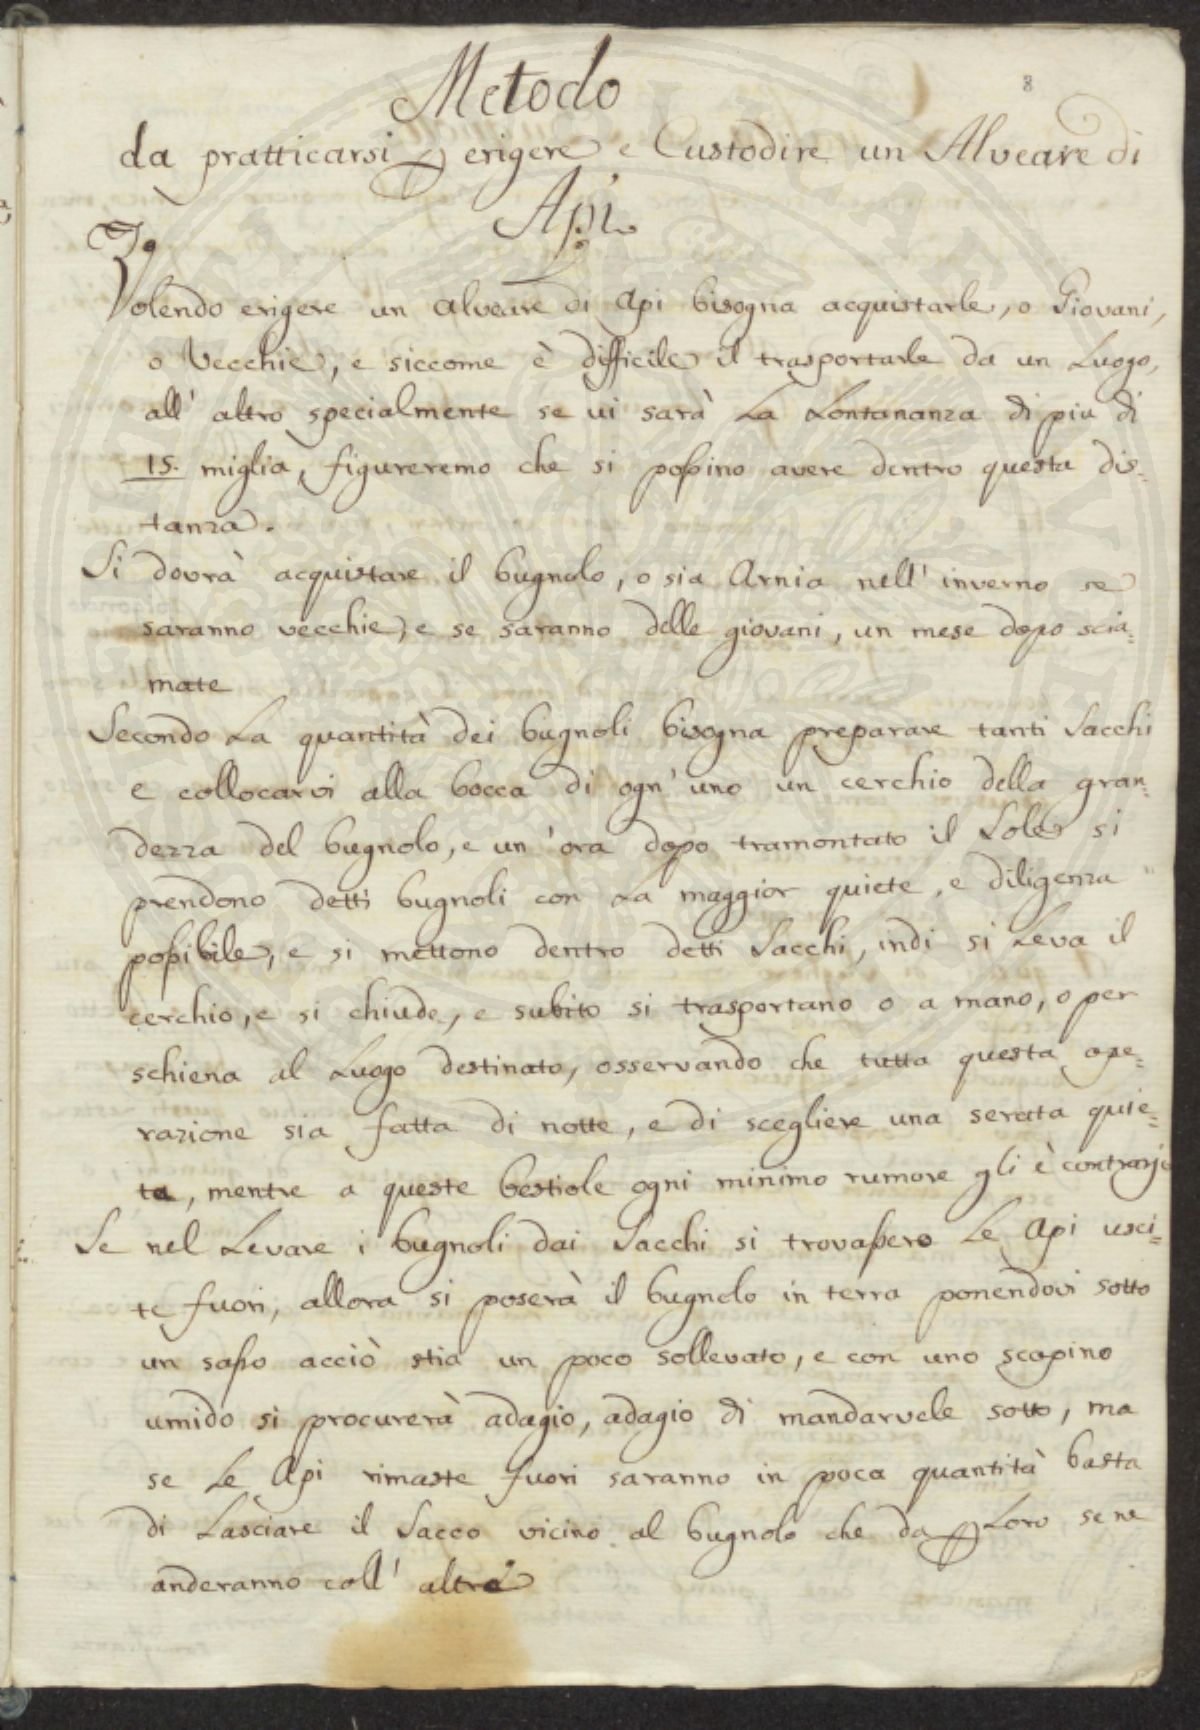 8
Metodo
da pratticarsi p erigere e Custodire un Alveare di
Api
Volendo erigere un alveare di Api bisogna acquistarle, o Giovani,
o Vecchie, e siccome è difficile il trasportarle da un Luogo,
all' altro specialmente se vi sarà La Lontananza di piu di
15. miglia, figureremo che si poßino avere dentro questa dis=
tanza.
Si dovrà acquistare il bugnolo, o sia Arnia nell' inverno se
saranno vecchie, e se saranno delle giovani, un mese dopo scia=
mate
Secondo La quantità dei bugnoli bisogna preparare tanti Sacchi
e collocarvi alla bocca di ogn' uno un cerchio della gran=
dezza del bugnolo, e un' ora dopo tramontato il Sole si
prendono detti bugnoli con La maggior quiete, e diligenza
poßibile, e si mettono dentro detti Sacchi, indi si Leva il
cerchio, e si chiude, e subito si trasportano o a mano, o per
schiena al Luogo destinato, osservando che tutta questa ope=
razione sia fatta di notte, e di scegliere una serata quie=
ta, mentre a queste bestiole ogni minimo rumore gli è contrario
Se nel Levare i bugnoli dai Sacchi si trovaßero Le Api usci=
te fuori, allora si poserà il bugnolo in terra ponendovi sotto
un saßo acciò stia un poco sollevato, e con uno scopino
umido si procurerà adagio, adagio di mandarvele sotto, ma
se Le Api rimaste fuori saranno in poca quantità basta
di Lasciare il Sacco vicino al bugnolo che da p Loro se ne
anderanno coll' altre